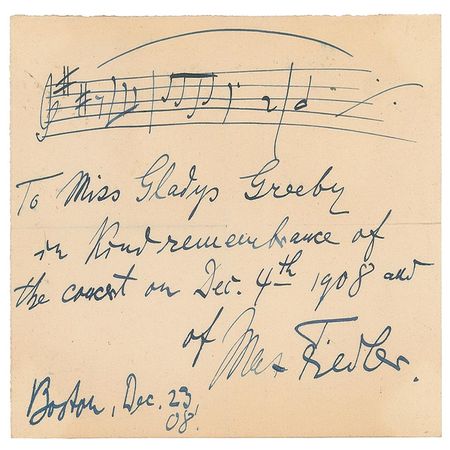 To Miss Gladys Greeby
in kind remembrance of
the concert on Dec. 4th 1908 and
of Max Fiedler.
Boston, Dec. 23
08.